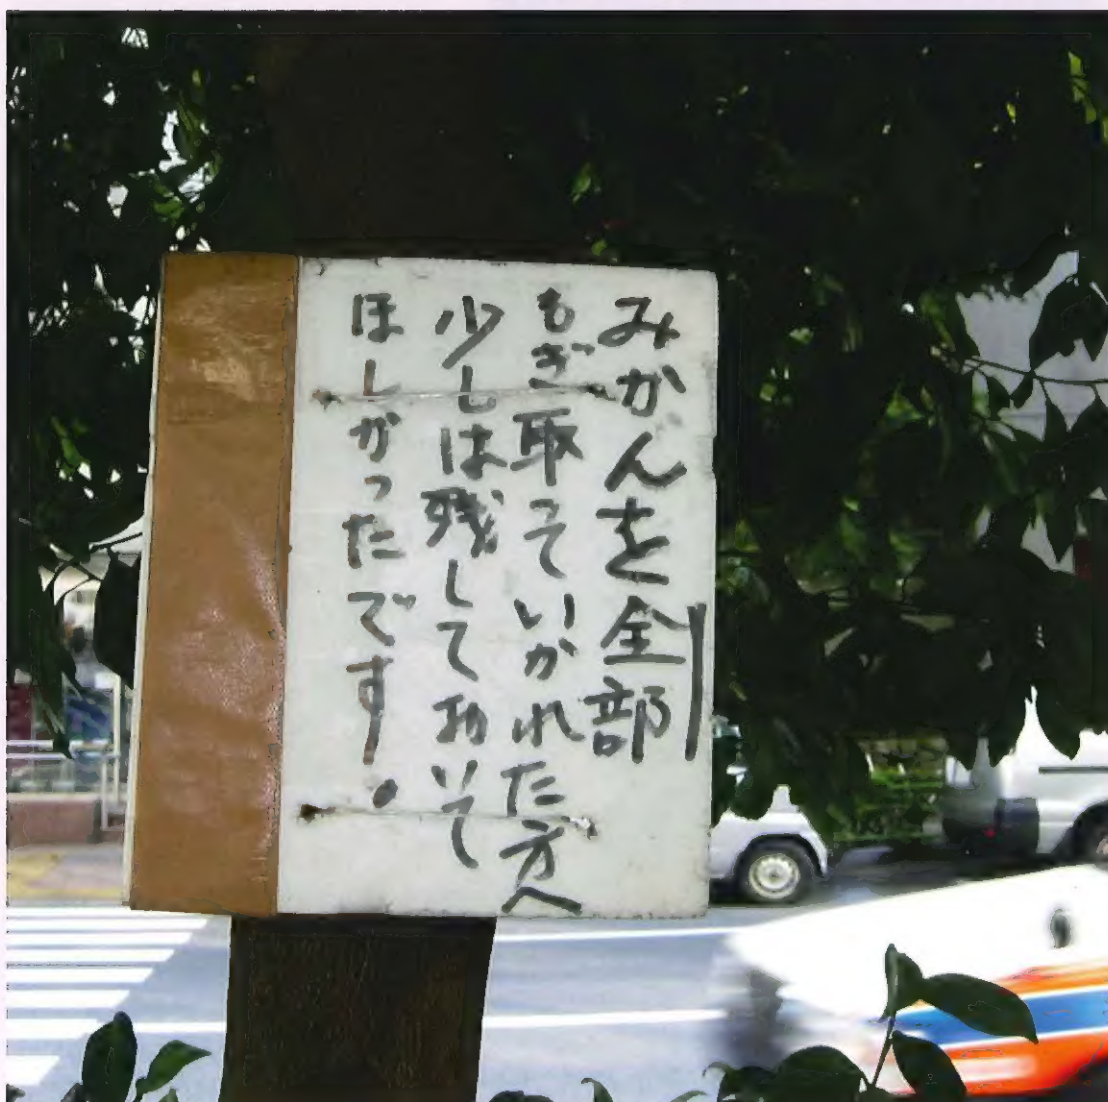 みかんを全部
もぎ取っていかれた方へ
少しは残しておいて
ほしかったです!